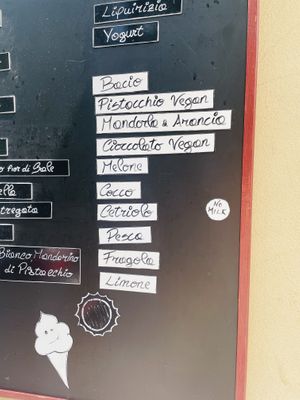 Liquirizia
Yogurt
Bacio
Pistacchio Vegan
Mandorla e Arancia
Cioccolato Vegan
Melone
Cocco
Cetriolo
Pesca
Fragola
Limone
NO
MILK
Fior di Sale
Bianco, Mandarino
di Pistacchio